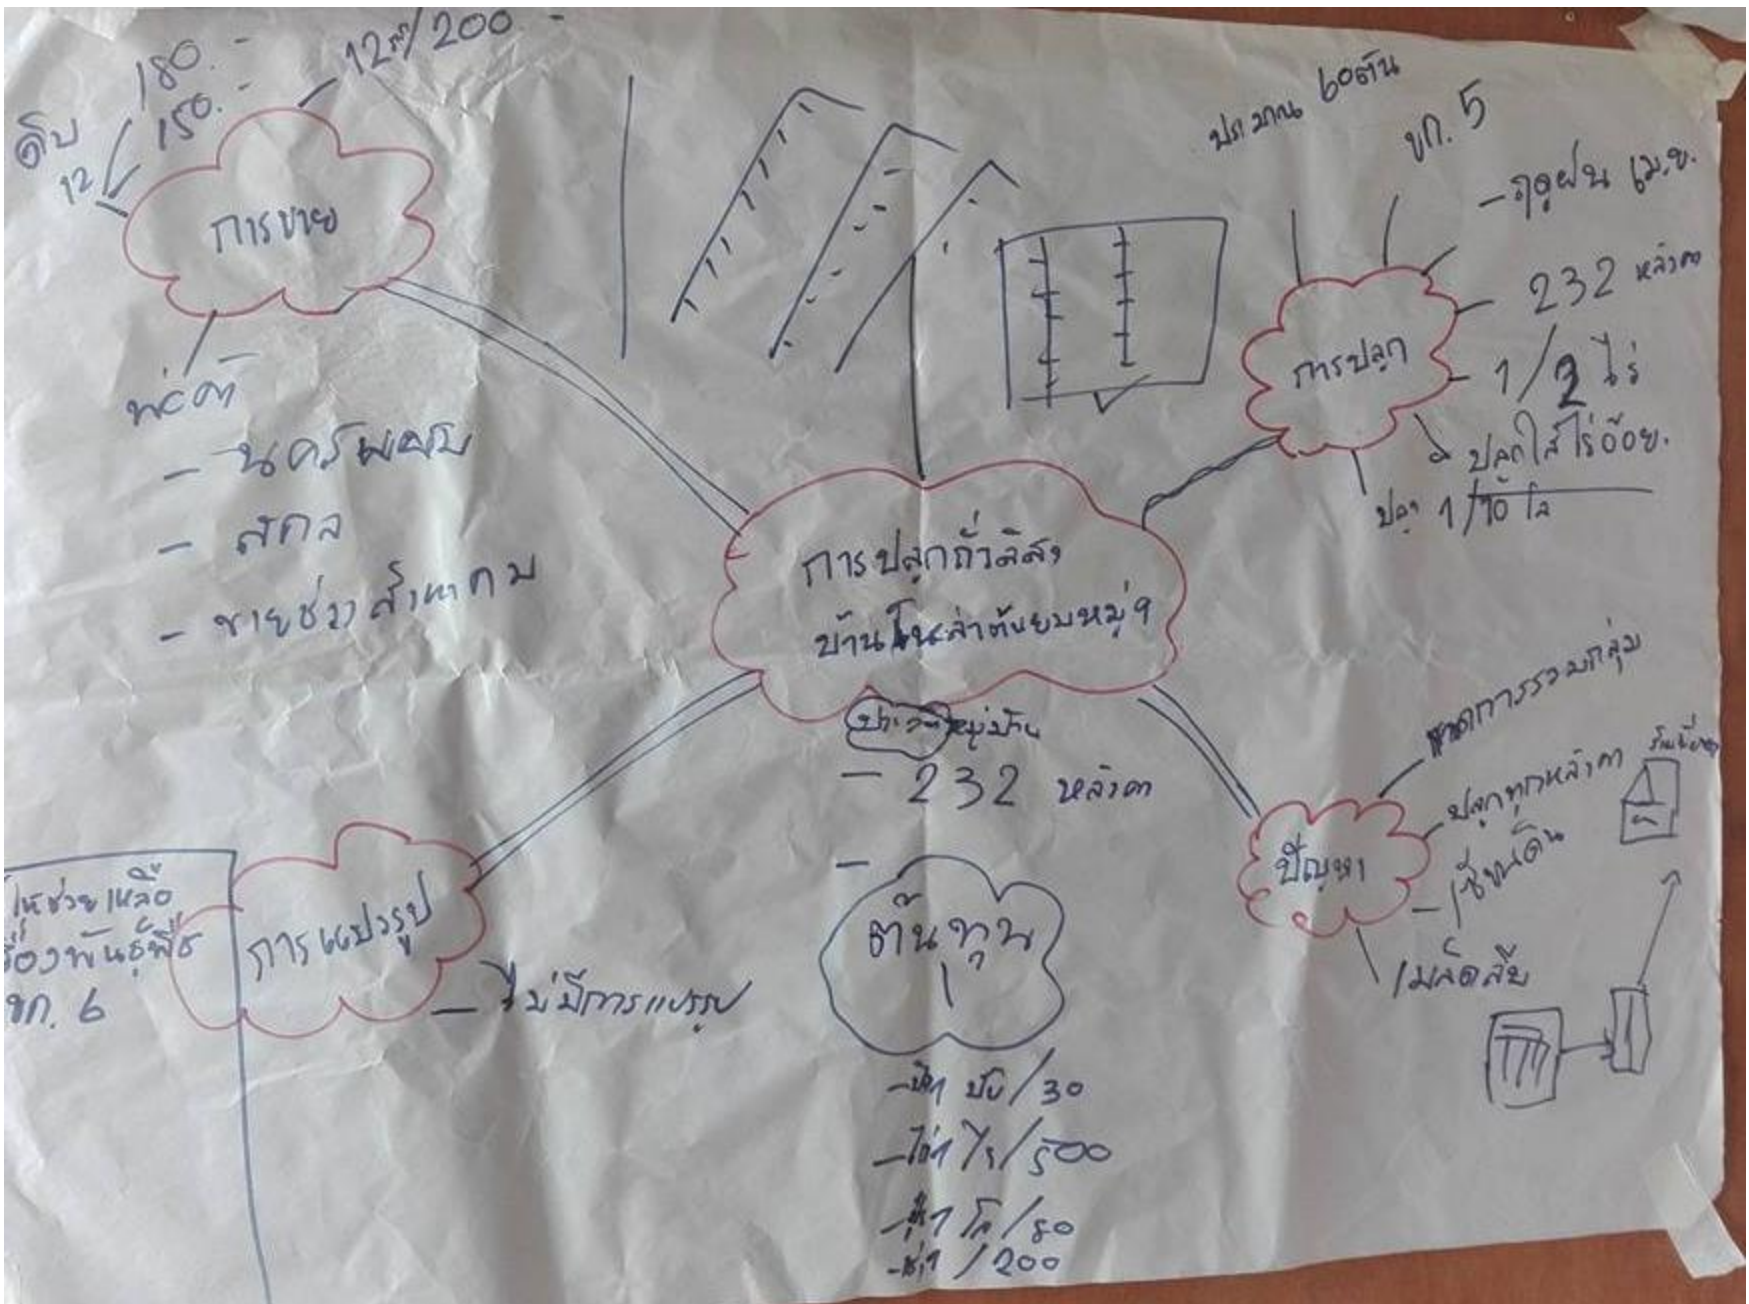 180.-
ดิบ
12/150.-
12 กก/200.-
การขาย
พ่อค้า
- นครพนม
- สกล
- ขายช่วงสิงหาคม
ประมาณ 60 ตัน
ขก. 5
- ฤดูฝน เม.ย.
232 หลังคา
1/2 ไร่
ปลูกใส่ไร่อ้อย.
1/10 โล
การปลูก
การปลูกถั่วลิสง
หมู่บ้าน
- 232 หลังคา
ต้นทุน
1
/30
- ไถ 1 ไร่/500
โล/80
/200
ขาดการรวมกลุ่ม
ปลูกทุกหลังคา
ปัญหา
เมล็ดลีบ
การแปรรูป
- ไม่มีการแปรรูป
ให้ช่วยเหลือ
เรื่องพันธุ์พืช
ขก. 6